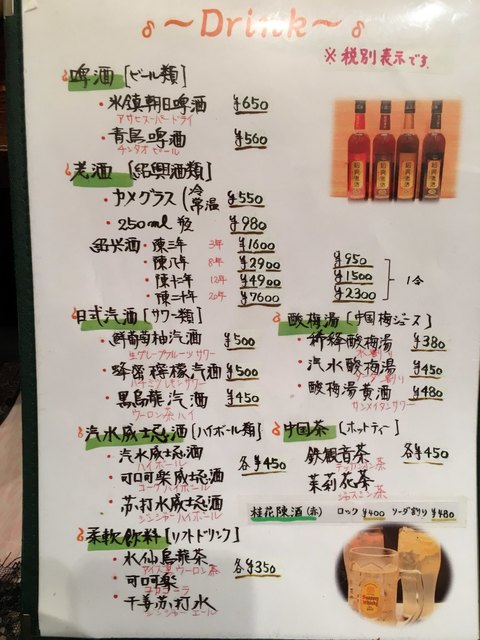 ～Drink～
※税別表示です。
啤酒 [ビール類]
・氷鎮朝日啤酒 ¥650
アサヒスーパードライ
・青島啤酒 ¥560
チンタオビール
老酒 [紹興酒類]
・カメグラス (冷 常温 ¥550
・250ml 瓶 ¥980
紹兴酒・陳三年 3年 ¥1600
・陳八年 8年 ¥2900 ¥950
・陳十二年 12年 ¥4900 ¥1500 1合
・陳二十年 20年 ¥7600 ¥2300
日式汽酒 [サワー類]
・鮮葡萄柚汽酒 ¥500
生グレープフルーツサワー
・蜂蜜檸檬汽酒 ¥500
ハチミツレモンサワー
・黒烏龍汽酒 ¥450
ウーロン茶ハイ
酸梅湯 [中国梅ジュース]
・稀绛酸梅湯 ¥380
水割り
・汽水酸梅湯 ¥450
ソーダ割り
・酸梅湯黄酒 ¥480
サンメイタンサワー
汽水威士忌酒 [ハイボール類]
・汽水威士忌酒
ハイボール
・可口可楽威士忌酒 各¥450
コークハイボール
・苏打水威士忌酒
ジンジャーハイボール
中国茶 [ホットティー]
鉄観音茶 各¥450
テッカンノン茶
茉莉花茶
ジャスミン茶
桂花陳酒(赤) ロック ¥400 ソーダ割り ¥480
柔軟飲料 [ソフトドリンク]
・水仙烏龍茶
アイス烏ウーロン茶
・可口可楽 各¥350
コカコーラ
・干姜苏打水
ジンジャーエール